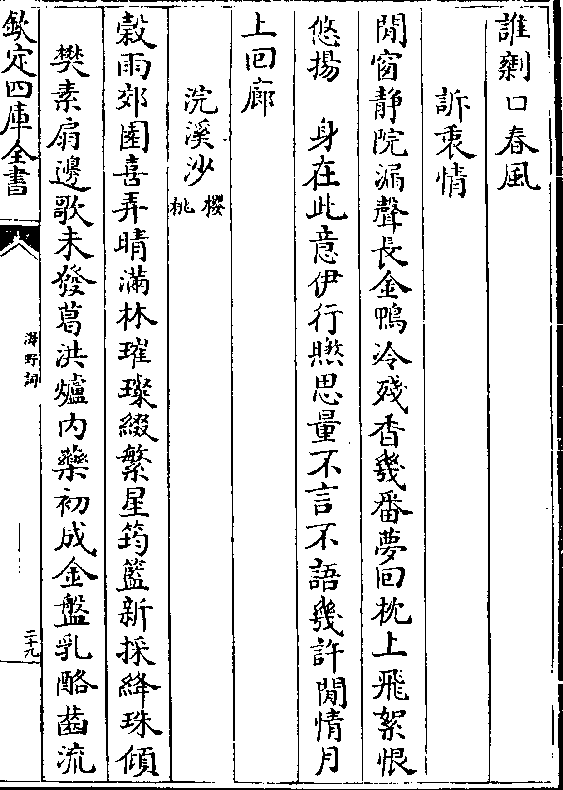 誰剩口春風
訴衷情
閒窗静院漏聲長金鴨冷殘香幾番夢回枕上飛絮恨
悠揚 身在此意伊行㬠思量不言不語幾許閒情月
上回廊
浣溪沙櫻桃
榖雨郊園喜弄晴滿林璀璨綴繁星筠籃新採絳珠傾
樊素扇邊歌未發葛洪爐内藥初成金盤乳酪齒流
欽定四庫全書
海野詞
二十九